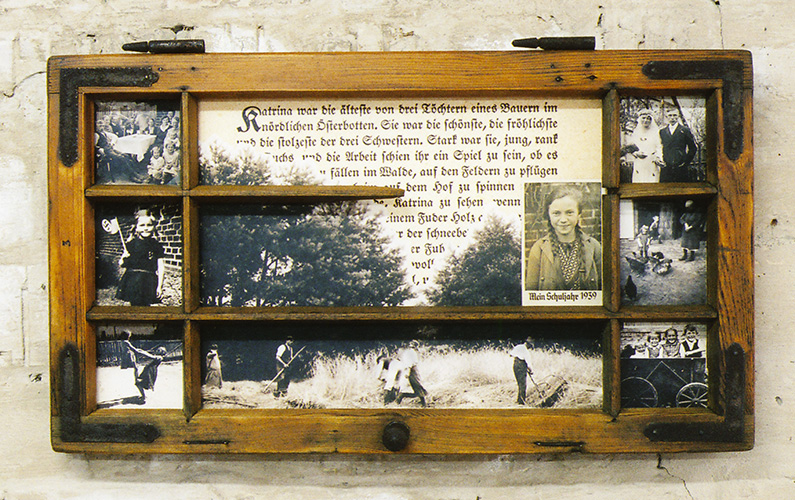 Katrina war die älteste von drei Töchtern eines Bauern im
nördlichen Österbotten. Sie war die schönste, die fröhlichste
und die stolzeste der drei Schwestern. Stark war sie, jung, rank
und die Arbeit schien ihr ein Spiel zu sein, ob es
fällen im Walde, auf den Feldern zu pflügen
auf dem Hof zu spinnen
Katrina zu sehen wenn
einem Fuder Holz
der schneebe
er Fuh
wolk
Mein Schuljahr 1939